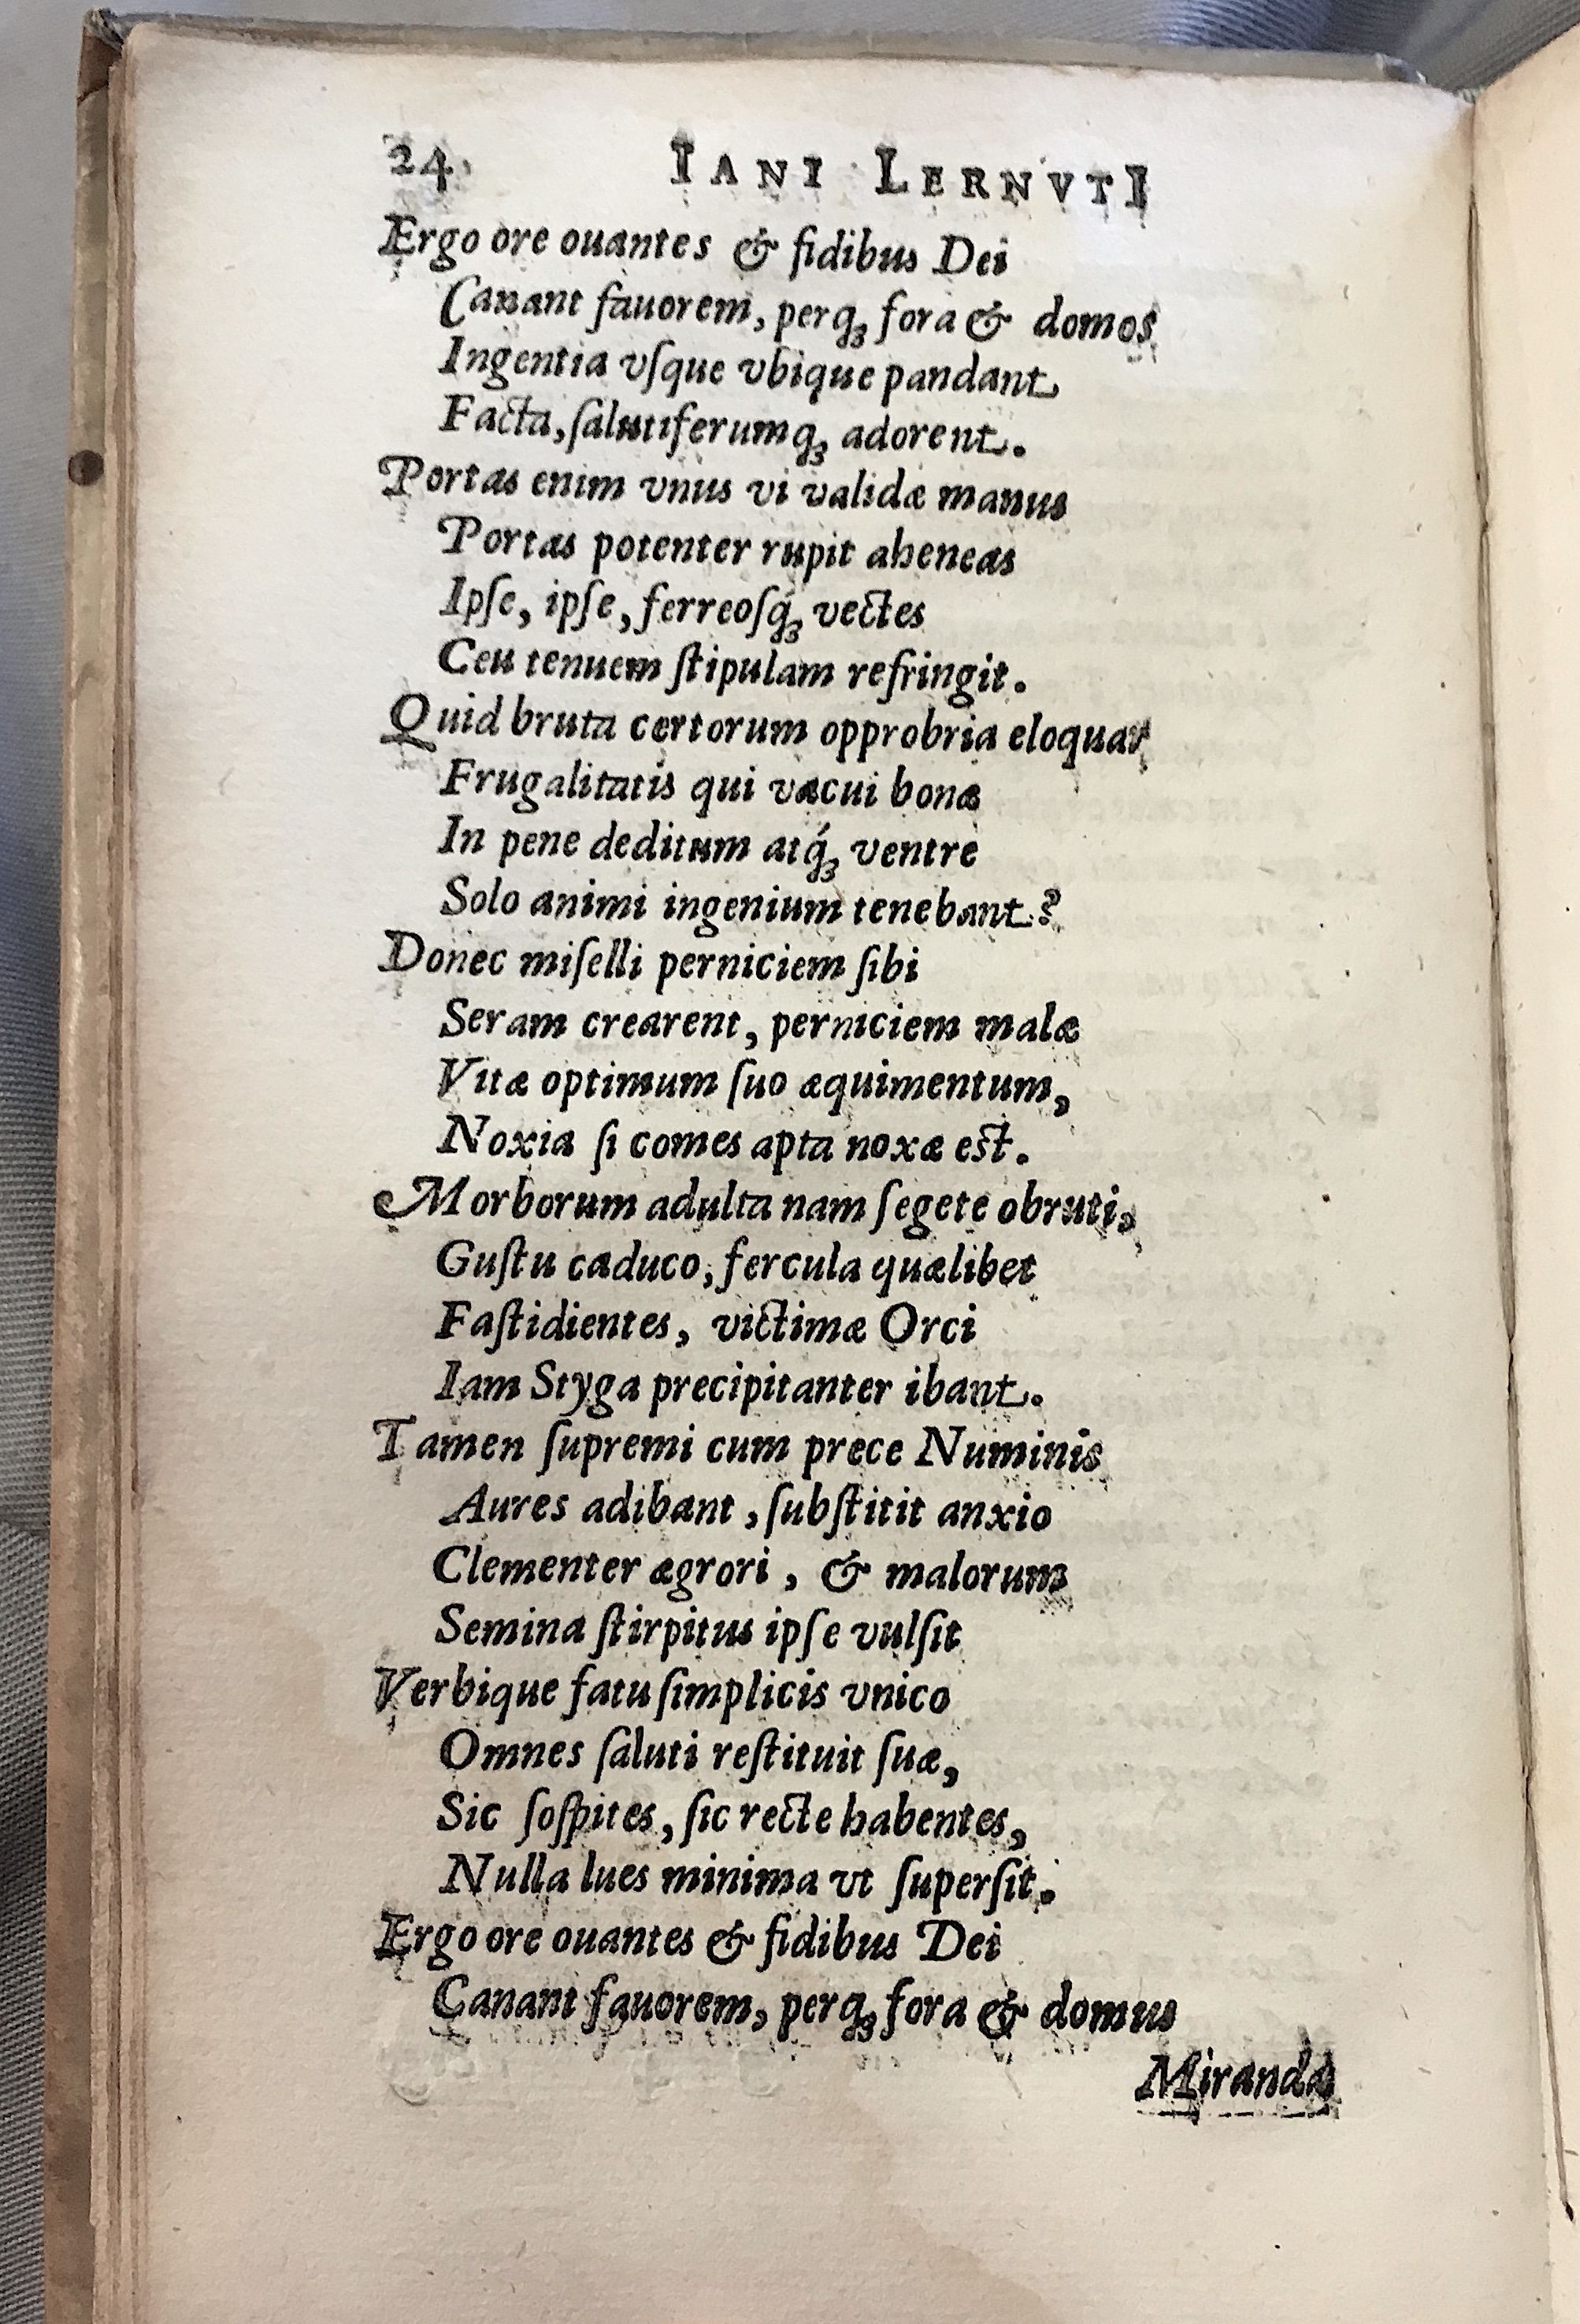 24. IANI LERNVTI
Ergo ore ouantes & fidibus Dei
Canant fauorem, perq́ꝫ fora & domos
Ingentia vſque vbique pandant
Facta, ſalutiferumqꝫ adorent.
Portas enim vnius vi validæ manus
Portas potenter rupit aheneas
Ipſe, ipſe, ferreoſq́ꝫ vectes
Ceu tenuem ſtipulam refringit.
Quid bruta certorum opprobria eloquar
Frugalitatis qui vacui bonæ
In pene deditum atq́ꝫ ventre
Solo animi ingenium tenebant?
Donec miſelli perniciem ſibi
Seram crearent, perniciem malæ
Vitæ optimum ſuo æquimentum,
Noxia ſi comes apta noxæ est.
Morborum adulta nam ſegete obruti,
Guſtu caduco, fercula quælibet
Faſtidientes, victimæ Orci
Iam Styga precipitanter ibant.
Tamen ſupremi cum prece Numinis
Aures adibant, ſubſtitit anxio
Clementer ægrori, & malorum
Semina ſtirpitus ipſe vulſit
Verbique fatu ſimplicis vnico
Omnes ſaluti reſtituit ſuæ,
Sic ſoſpites, ſic recte habentes,
Nulla lues minima vt ſuperſit.
Ergo ore ouantes & fidibus Dei
Canant fauorem, perqꝫ fora & domus
Miranda